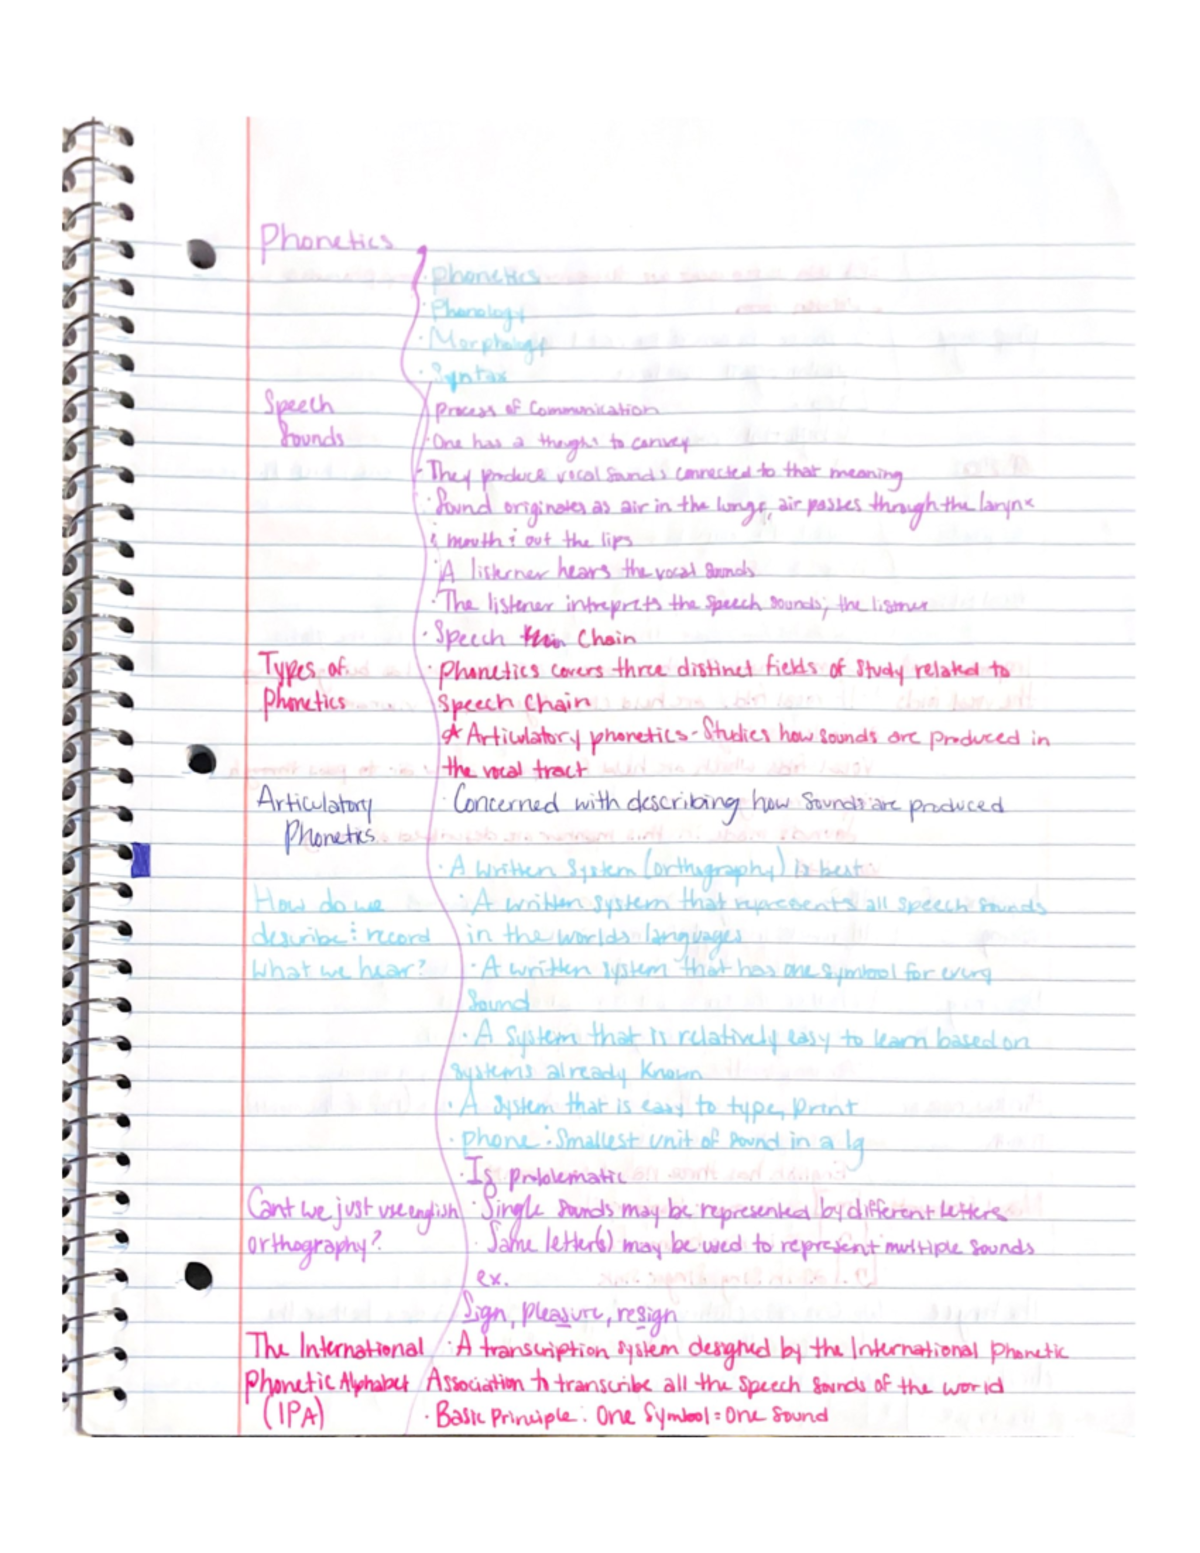 Phonetics
· phonetics
· Phonology
· Morphology
· Syntax
Speech Sounds
process of Communication
· One has a thought to convey
· They produce vocal sounds connected to that meaning
· Sound originates as air in the lungs, air passes through the larynx
& mouth & out the lips
· A listerner hears the vocal sounds
· The listener intreprets the speech sounds; the listner
· Speech Chain
Types of Phonetics
· Phonetics covers three distinct fields of study related to
Speech Chain
* Articulatory phonetics - Studies how sounds are produced in
the vocal tract
Articulatory Phonetics
· Concerned with describing how sounds are produced
· A written system (orthography) is best
How do we describe & record What we hear?
· A written system that represents all speech sounds
in the worlds languages
· A written system that has one symbool for every
Sound
· A system that is relatively easy to learn based on
systems already known
· A system that is easy to type, print
· phone : Smallest unit of sound in a lg
· Is problematic
Cant we just use english orthography?
· Single sounds may be represented by different letters
· Same letter(s) may be used to represent multiple sounds
ex.
Sign, pleasure, resign
The International Phonetic Alphabet (IPA)
· A transcription system designed by the International Phonetic
Association to transcribe all the speech sounds of the world
· Basic Principle: One Symbool = One sound